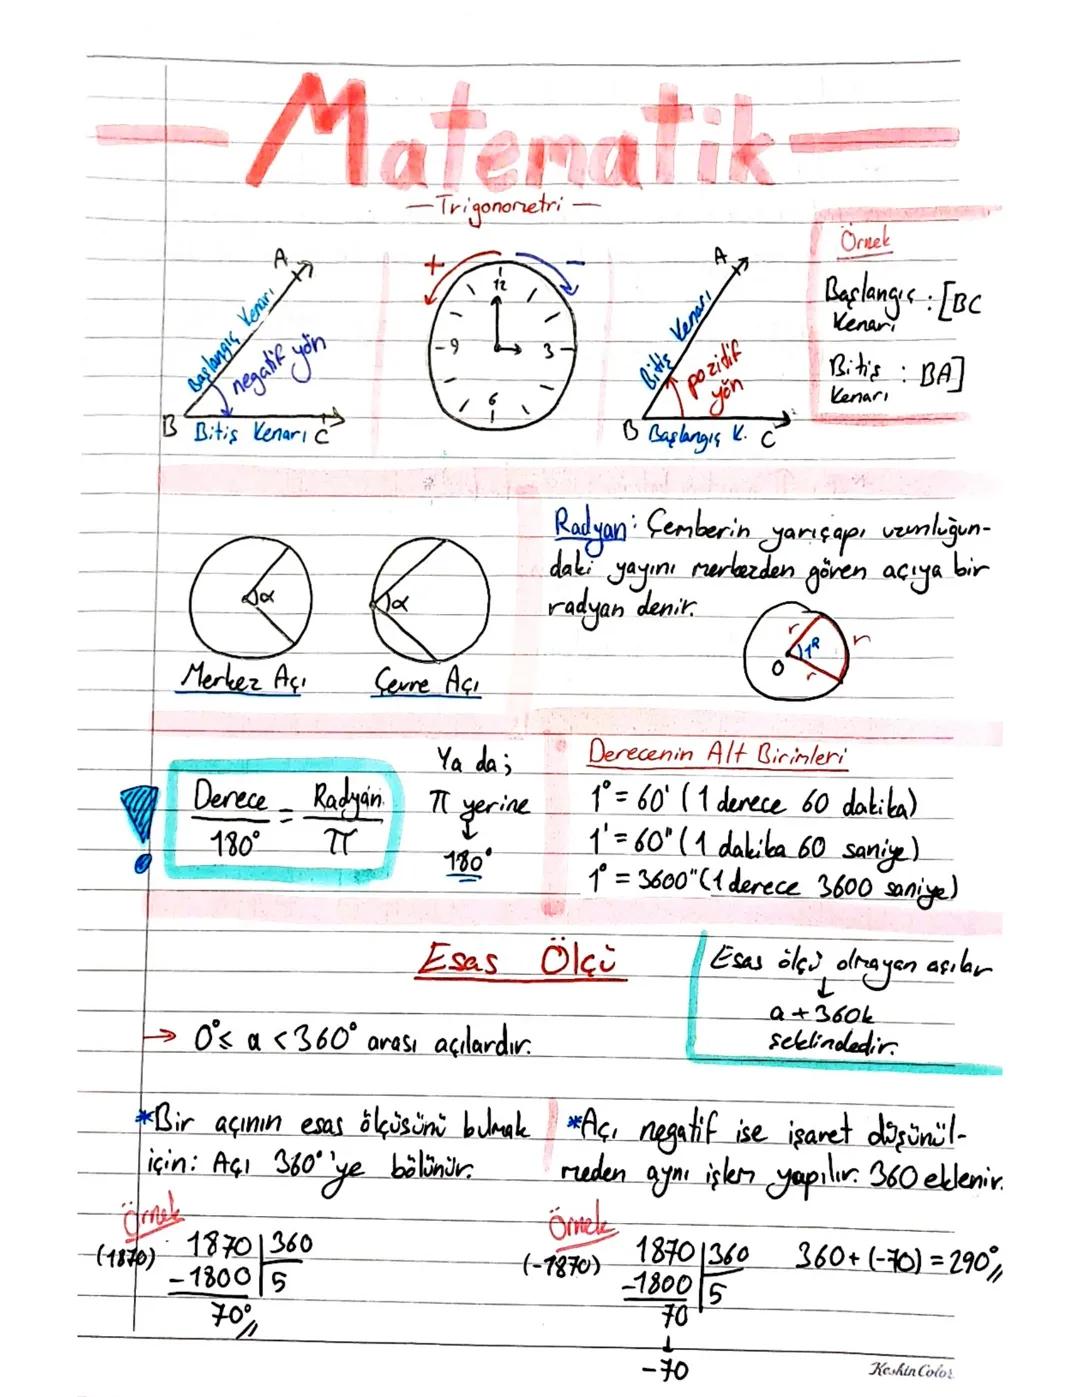 Matematik
— Trigonometri —
A
Başlangıç Kenarı
negatif yön
B
Bitiş Kenarı
C
+
−
12
9
3
6
A
Bitiş Kenarı
pozidif
yön
B
Başlangıç K.
C
Örnek
Başlangıç : [BC
Kenarı
Bitiş : BA]
Kenarı
α
Merkez Açı
α
Çevre Açı
Radyan: Çemberin yarıçapı uzunluğun-
daki yayını merkezden gören açıya bir
radyan denir.
r
r
1ᴿ
O
r
Derece = Radyan
180° π
Ya da;
π yerine
↓
180°
Derecenin Alt Birimleri
1° = 60' (1 derece 60 dakika)
1' = 60" (1 dakika 60 saniye)
1° = 3600" (1 derece 3600 saniye)
Esas Ölçü
→ 0° ≤ a < 360° arası açılardır.
Esas ölçü olmayan açılar
↓
a + 360k
şeklindedir.
*Bir açının esas ölçüsünü bulmak
için: Açı 360°'ye bölünür.
Örnek
(1870)
1870 | 360
-1800 | 5
70°
*Açı negatif ise işaret düşünül-
meden aynı işlem yapılır. 360 eklenir.
Örnek
(-1870)
1870 | 360
-1800 | 5
70
↓
-70
360 + (-70) = 290°
KeskinColor